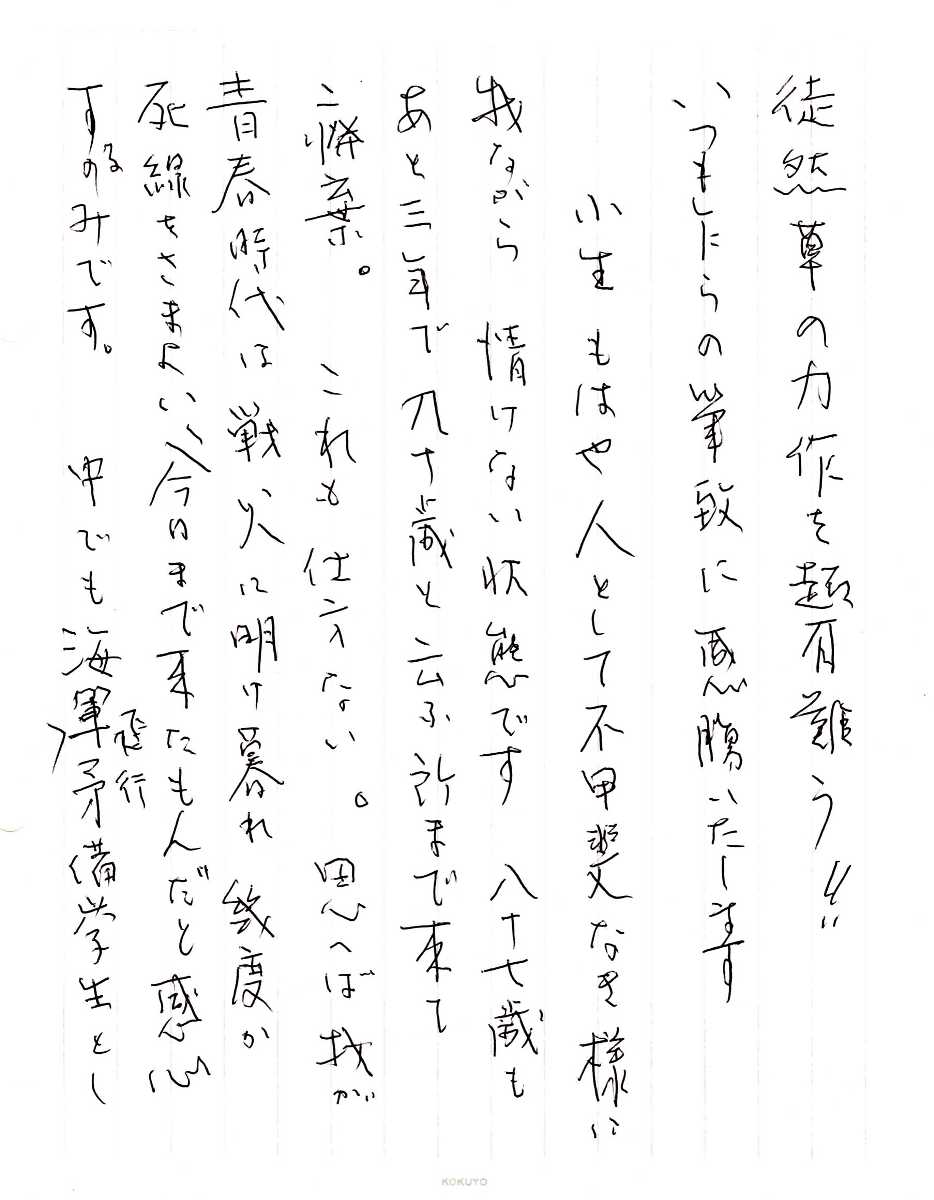 徒然草の力作を趣有難う!!
いつもしたらの筆致に感腸いたします
小生もはや人として不甲斐なき様に
我ながら 情けない状態です 八十七歳も
あと三年で九十歳と云ふ許まで来て
これも仕方ない。思へば我が
青春時代は戦火に明け暮れ 幾度か
死線をさまよい、今日まで来たもんだと感心
するのみです。 中でも海軍飛行予備学生とし
KOKUYO